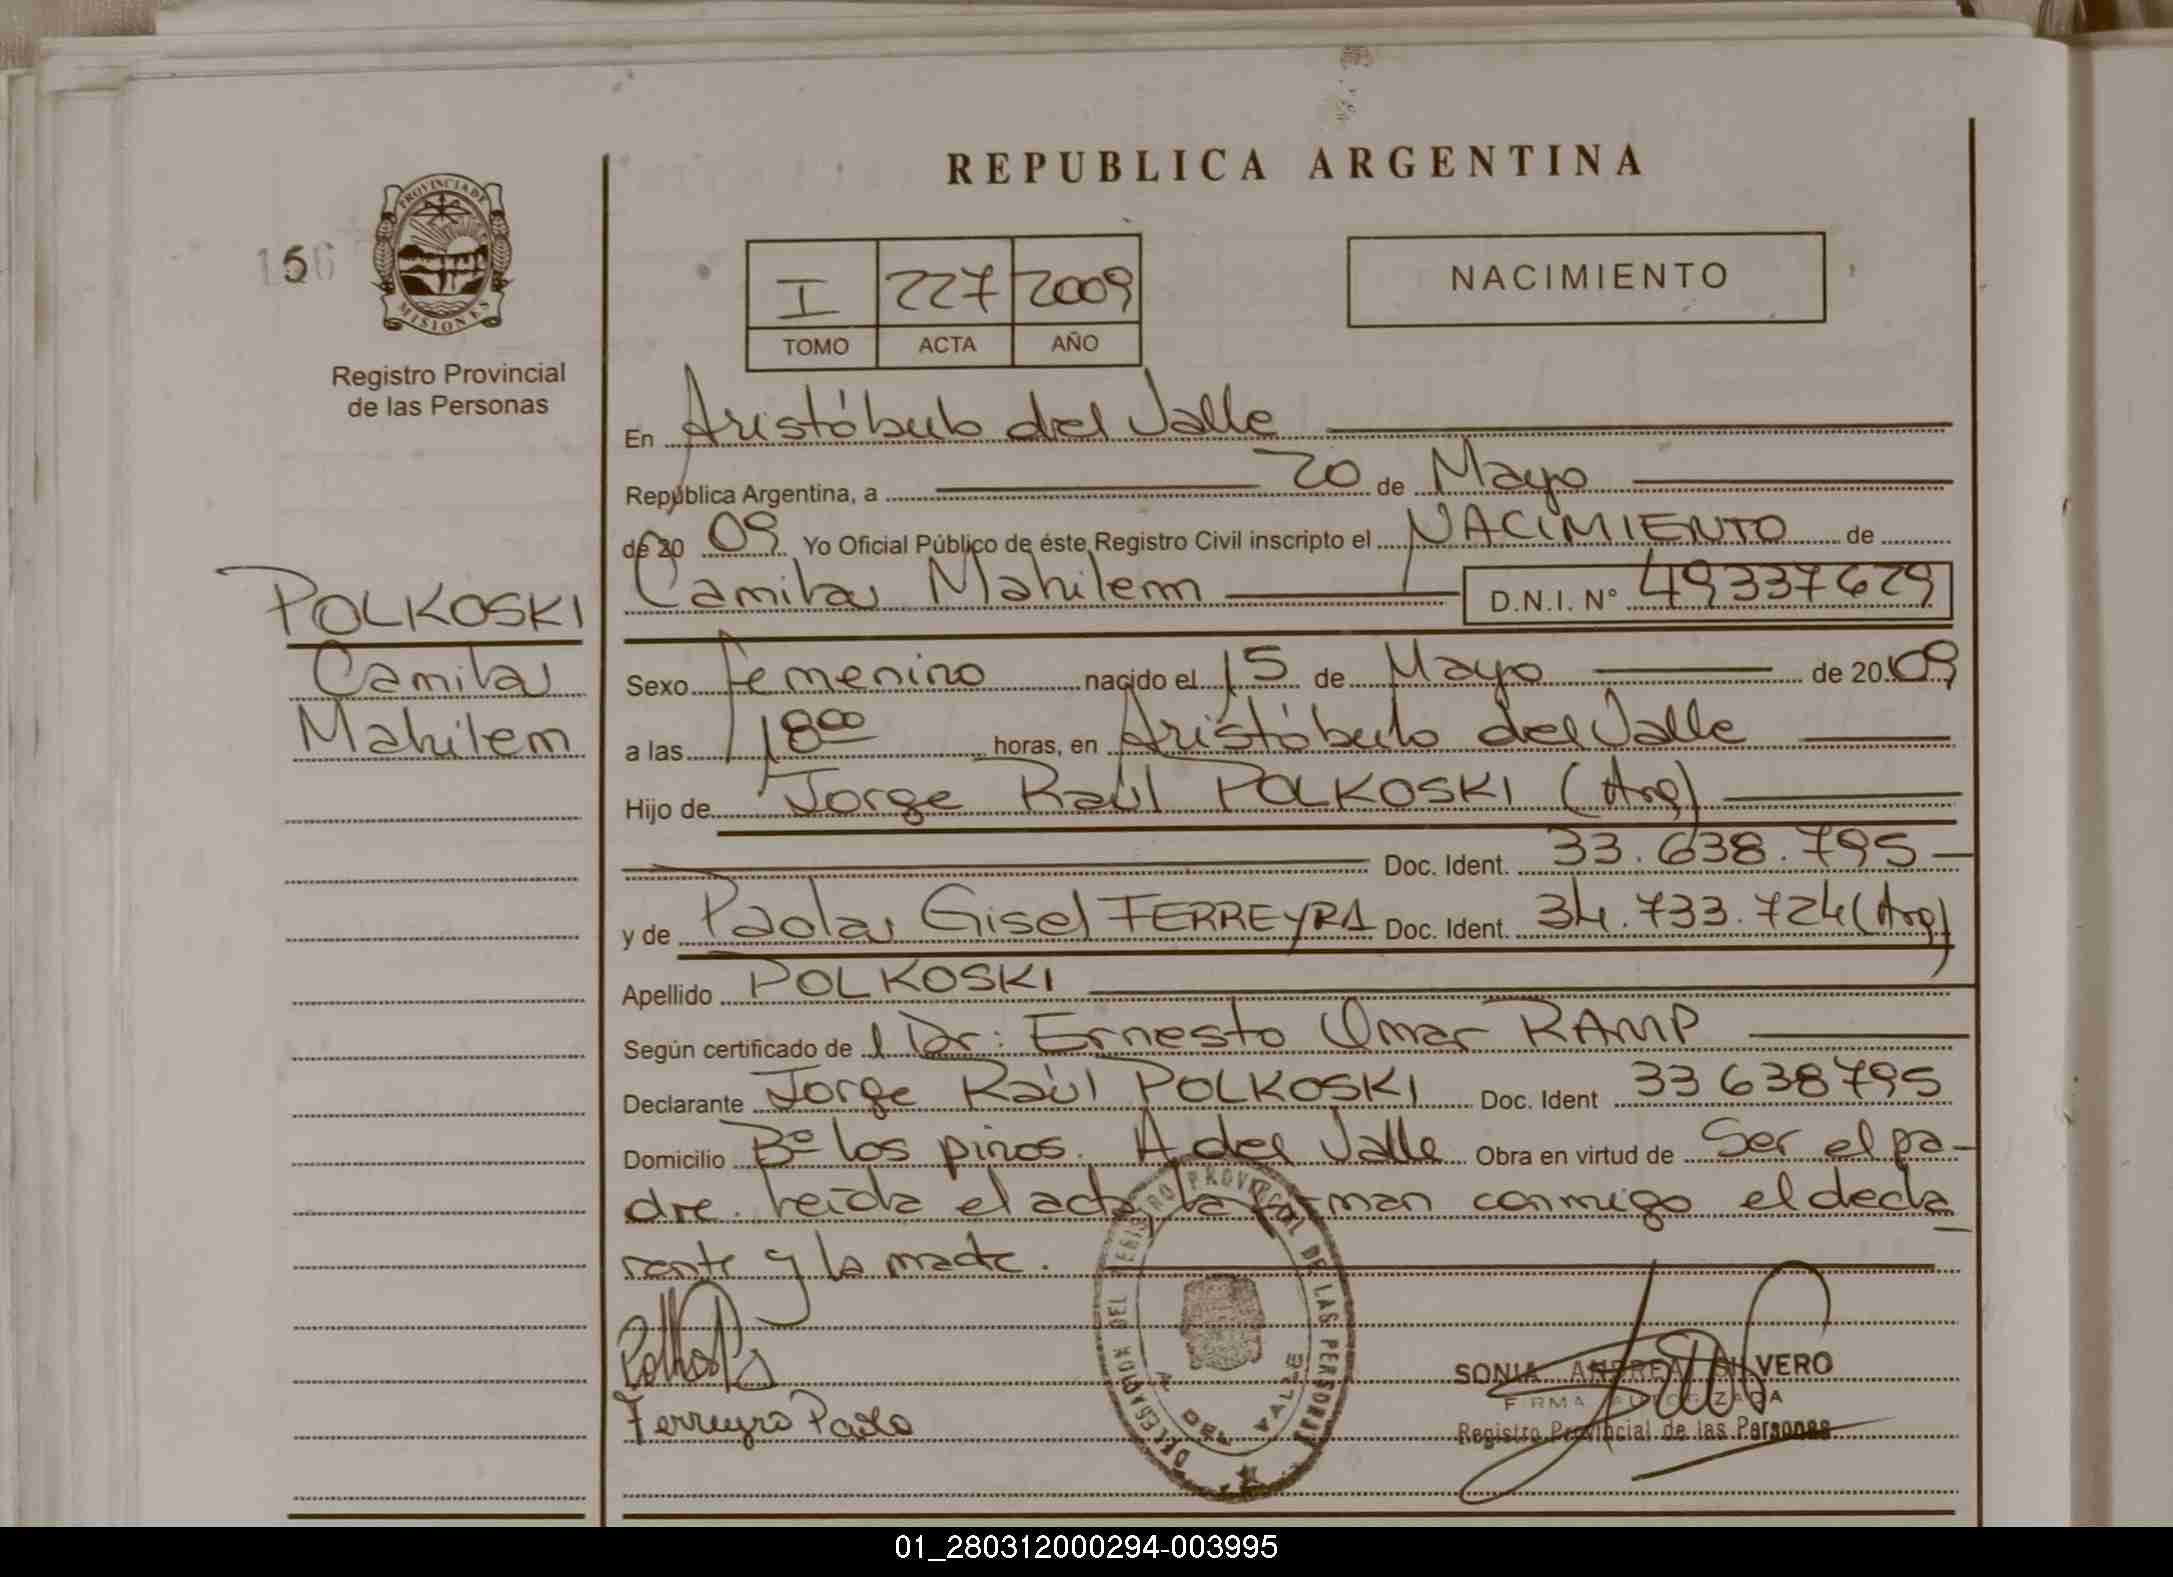 REPUBLICA ARGENTINA
156
PROVINCIA DE
MISIONES
Registro Provincial
de las Personas
I 227 2009
TOMO ACTA AÑO
NACIMIENTO
En Aristóbulo del Valle
República Argentina, a 20 de Mayo
de 20 09 Yo Oficial Público de éste Registro Civil inscripto el NACIMIENTO de
Camila Mahilem D.N.I. N° 49337629
POLKOSKI
Camila
Mahilem
Sexo Femenino nacido el 15 de Mayo de 20 09
a las 18 00 horas, en Aristóbulo del Valle
Hijo de Jorge Raúl POLKOSKI (Arg)
Doc. Ident. 33.638.795
y de Paola Gisel FERREYRA Doc. Ident. 34.733.724 (Arg)
Apellido POLKOSKI
Según certificado de l Dr: Ernesto Omar RAMP
Declarante Jorge Raúl POLKOSKI Doc. Ident 33638795
Domicilio Bº los pinos. A del Valle Obra en virtud de Ser el pa-
dre. leída el acta, la firman conmigo el decla
rante y la madre.
DELEGACION DEL REGISTRO PROVINCIAL DE LAS PERSONAS
A DEL VALLE
Ferreyra Paola
SONIA ANDREA SILVERO
FIRMA AUTORIZADA
Registro Provincial de las Personas
01_280312000294-003995